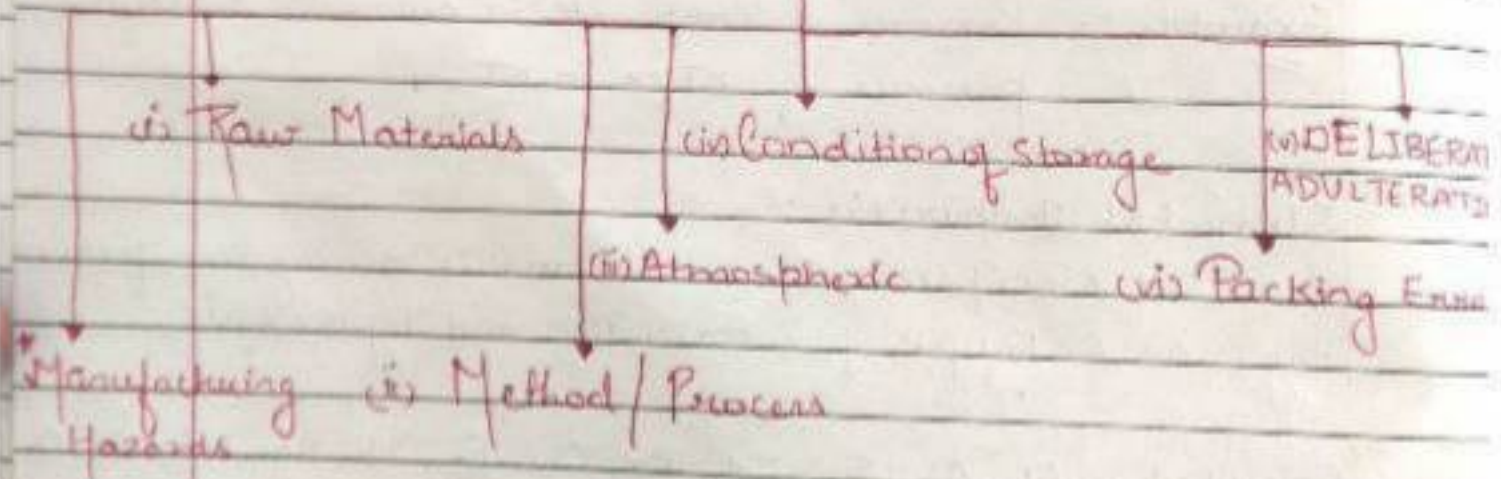 (i) Raw Materials
(iv) Condition of Storage
(v) DELIBERAT
ADULTERATI
(iii) Atmospheric
(vi) Packing Erro
* Manufacturing
Hazards
(ii) Method / Process